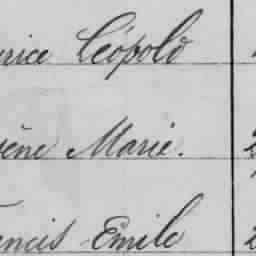 rice Léopold
ène Marie.
ancis Emile